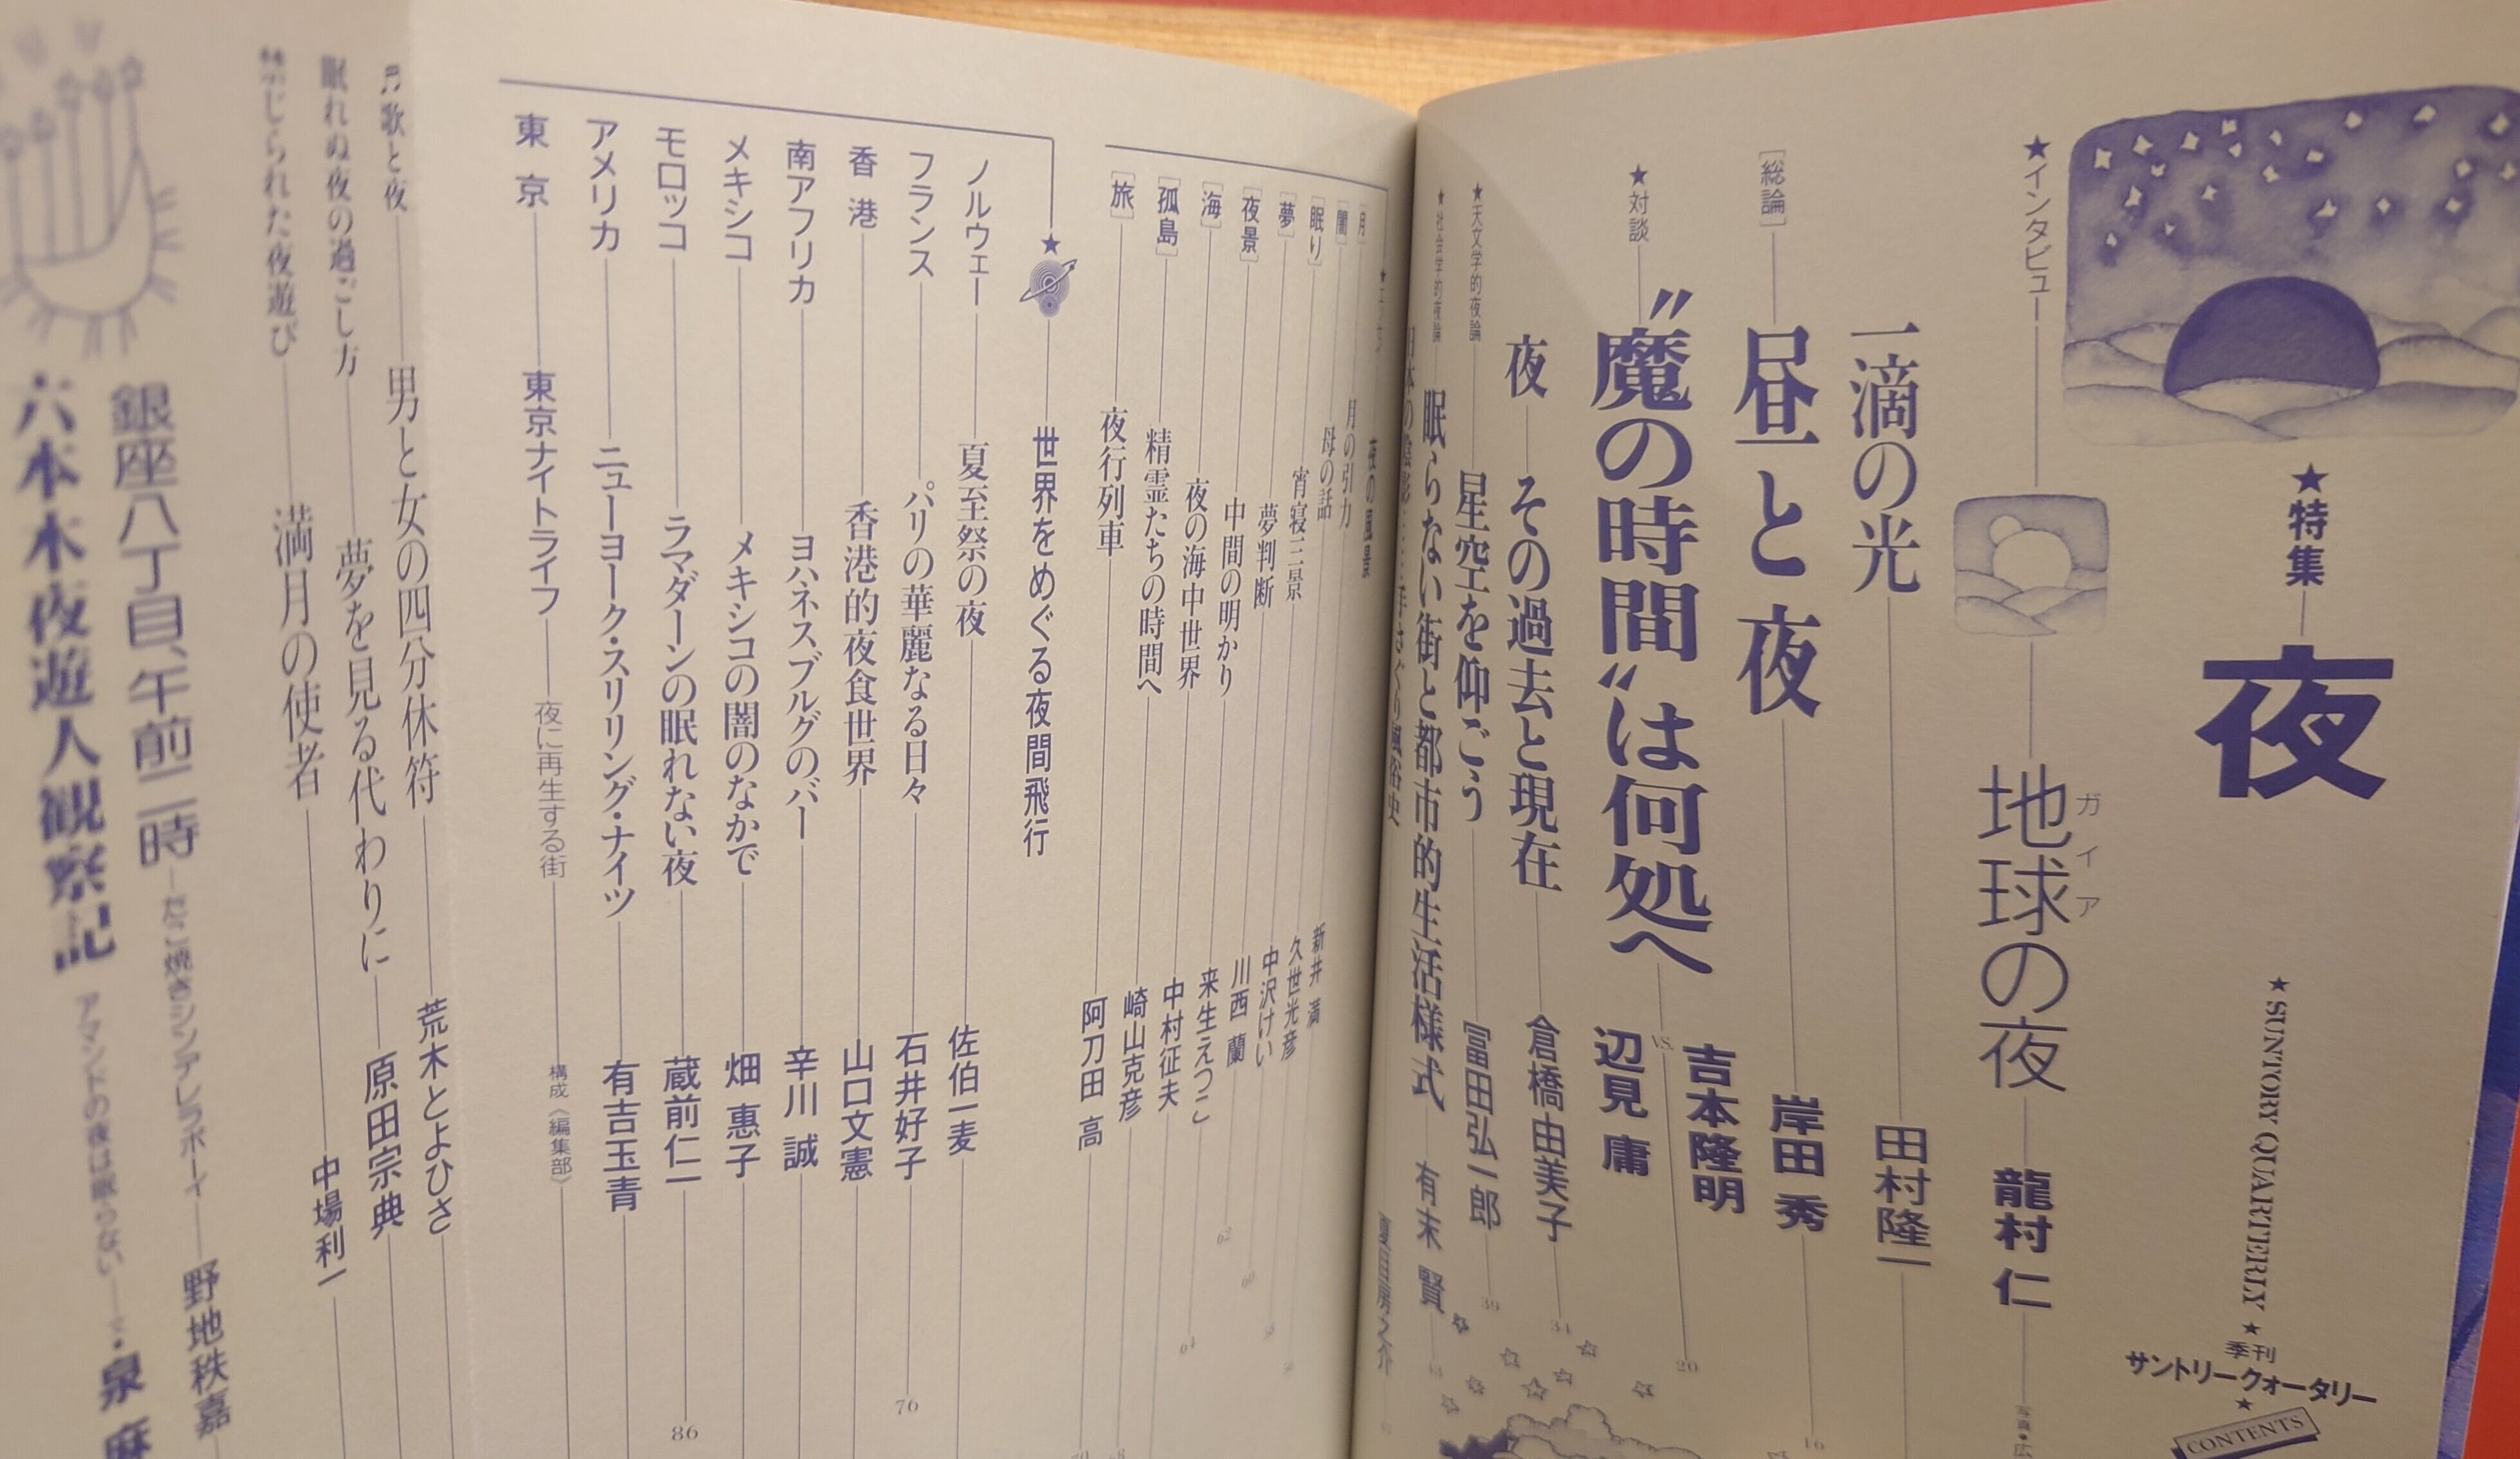 ★特集 夜
★SUNTORY QUARTERLY★季刊サントリークォータリー★
CONTENTS
★インタビュー 地球の夜 龍村 仁
ガイア
一滴の光 田村隆一
[総論] 昼と夜 岸田 秀 16
★対談 〝魔の時間〟は何処へ 吉本隆明 VS. 辺見 庸 20
夜―その過去と現在 倉橋由美子 34
★天文学的夜論 星空を仰ごう 冨田弘一郎 39
★社会学的夜論 眠らない街と都市的生活様式 有末 賢
夏目房之介
夜の風景
[月] 月の引力
[闇] 母の話 新井 満
[眠り] 宵寝三景 久世光彦
[夢] 夢判断 中沢けい
[夜景] 中間の明かり 川西 蘭
[海] 夜の海中世界 来生えつこ
[孤島] 精霊たちの時間へ 中村征夫
崎山克彦
[旅] 夜行列車 阿刀田 高
★世界をめぐる夜間飛行
ノルウェー 夏至祭の夜 佐伯一麦
フランス パリの華麗なる日々 石井好子 76
香港 香港的夜食世界 山口文憲
南アフリカ ヨハネスブルグのバー 辛川 誠
メキシコ メキシコの闇のなかで 畑 惠子
モロッコ ラマダーンの眠れない夜 蔵前仁一 86
アメリカ ニューヨーク・スリリング・ナイツ 有吉玉青
東京 東京ナイトライフ 夜に再生する街 構成〈編集部〉
♬歌と夜 男と女の四分休符 荒木とよひさ
眠れぬ夜の過ごし方 夢を見る代わりに 原田宗典
禁じられた夜遊び 満月の使者 中場利一
銀座八丁目、午前二時 たこ焼きシンデレラボーイ 野地秩嘉
六本木夜遊人観察記 アマンドの夜は眠らない 泉 麻